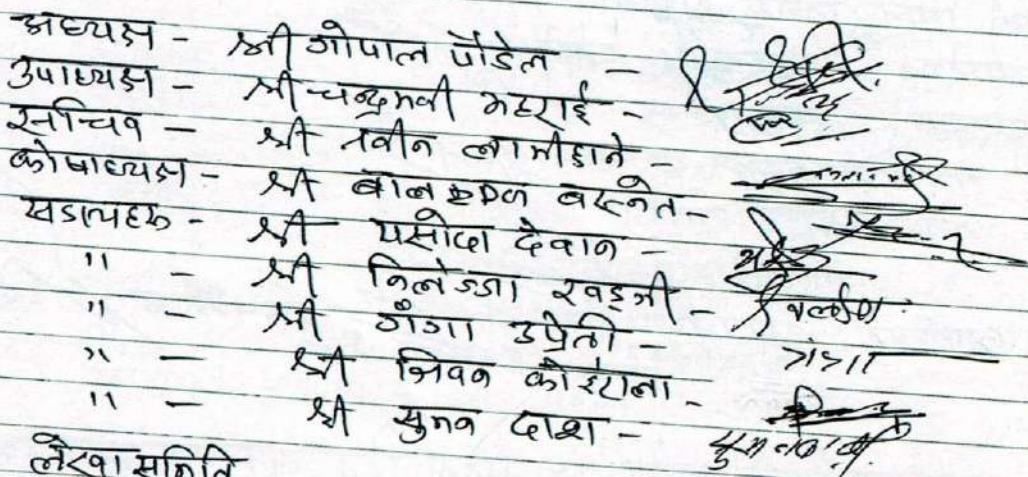 अध्यक्ष - श्री गोपाल पौडेल -
उपाध्यक्ष - श्री चन्द्रमनी भट्टराई -
सचिव - श्री नवीन लामीछाने -
कोषाध्यक्ष - श्री बालकृष्ण बस्नेत -
सदस्य - श्री यसोदा देवान -
" - श्री खड्गी -
" - श्री गंगा उप्रेती - गंगा
" - श्री जिवन कोइराला -
" - श्री सुमन दाश -
लेखा समिति